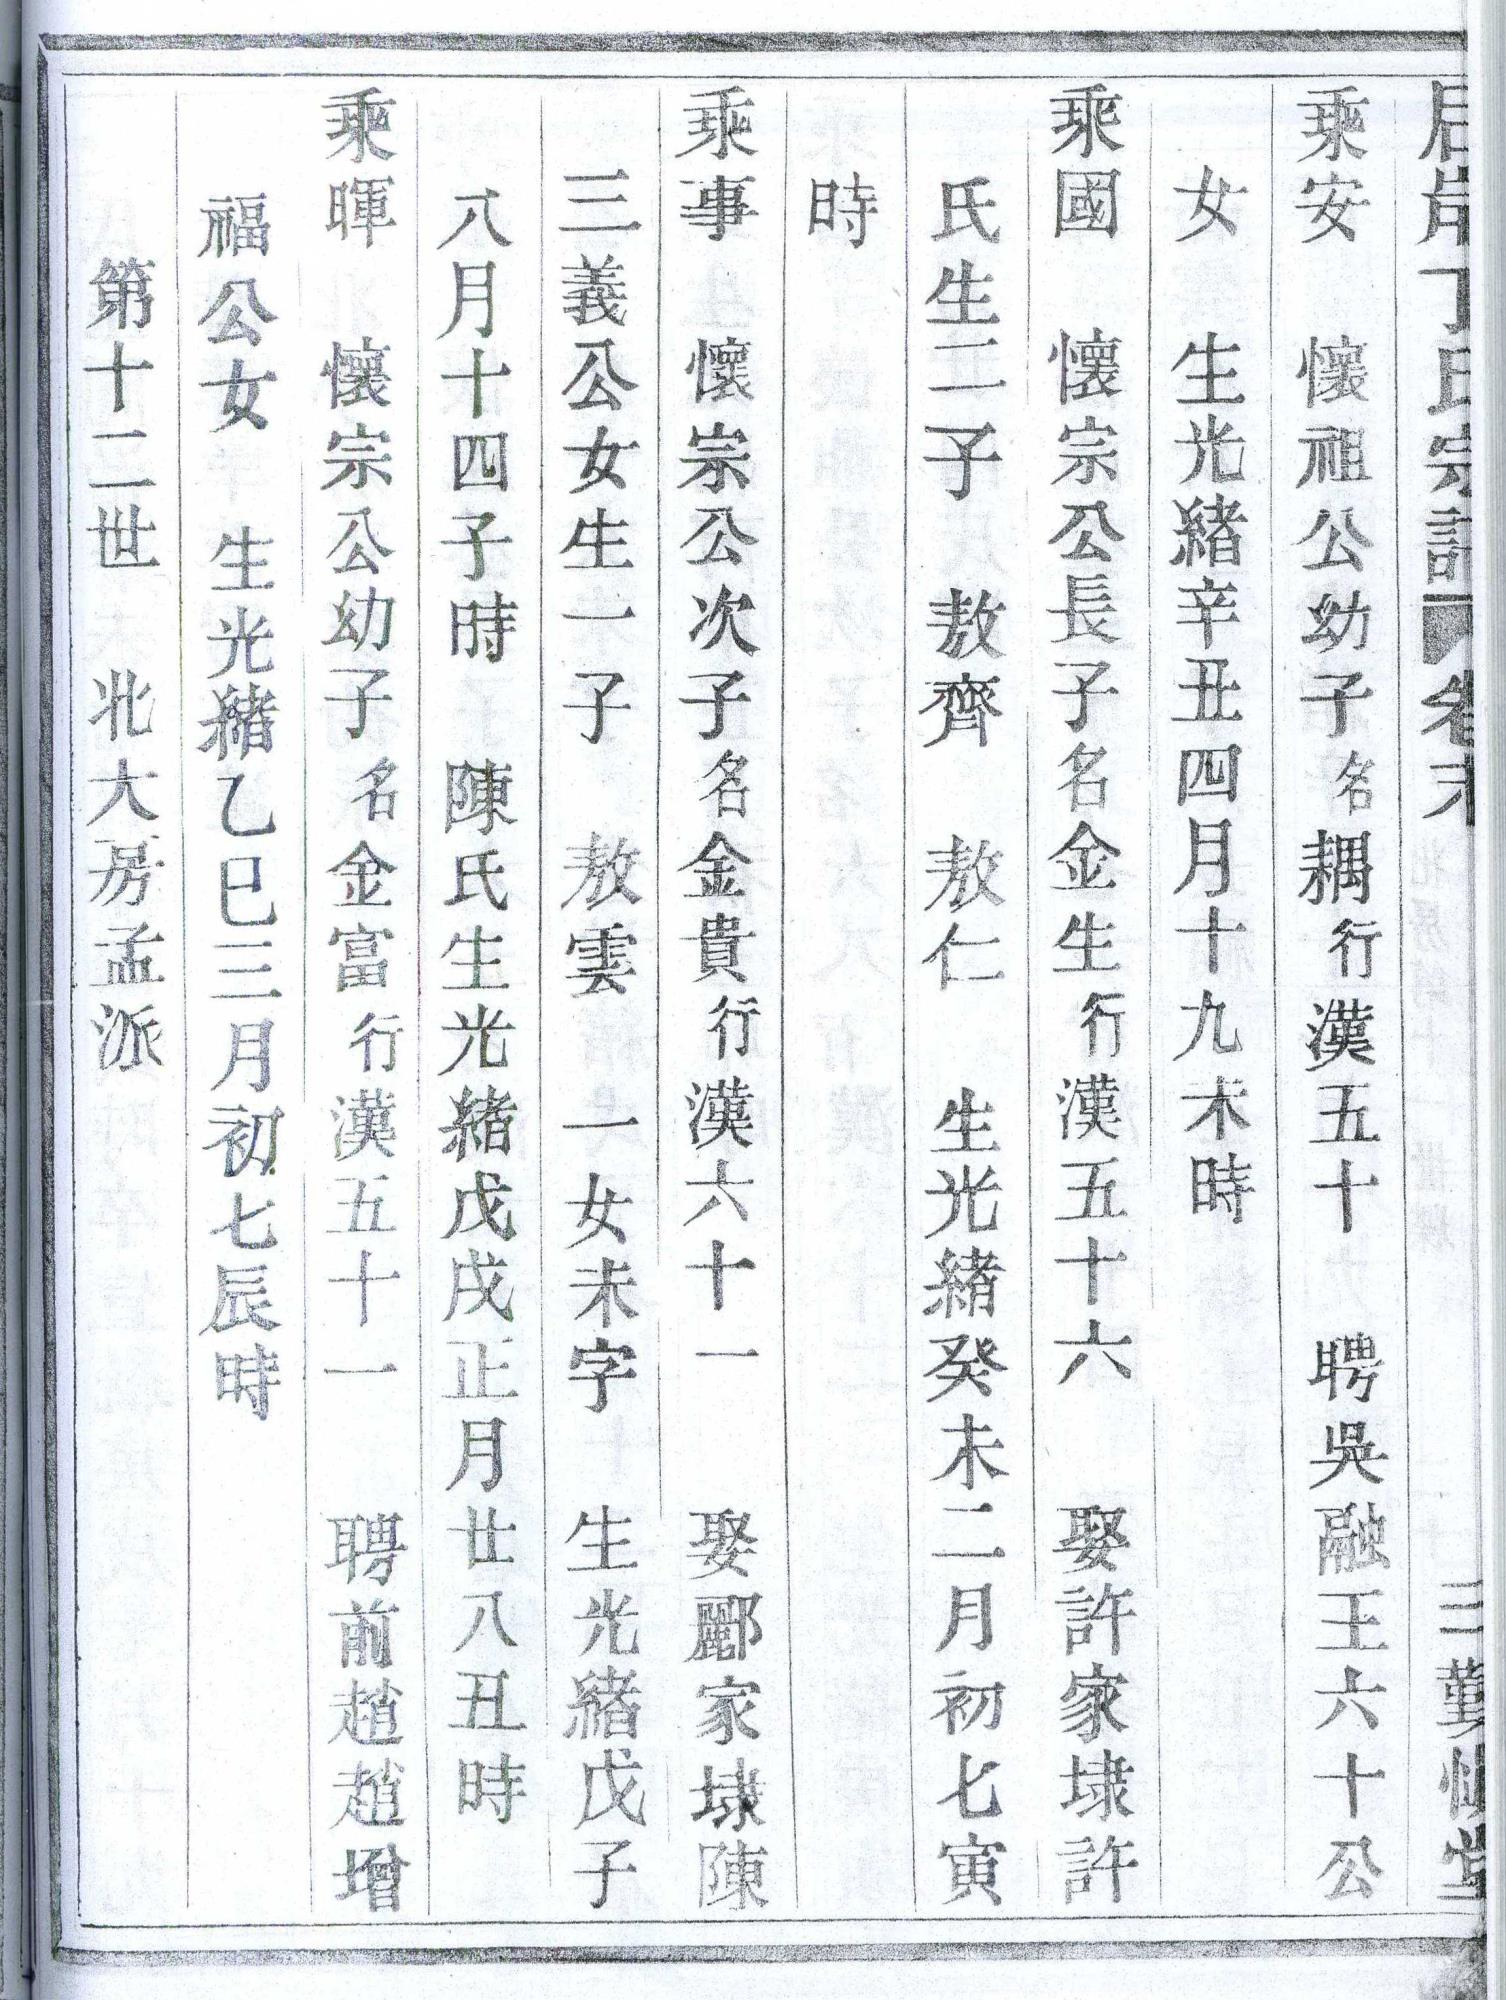 丁氏宗譜 卷末 三
乘安 懷祖公幼子名耦行漢五十 聘吳融王六十公
女 生光緒辛丑四月十九未時
乘國 懷宗公長子名金生行漢五十六 娶許家埭許
氏生二子 敖齊 敖仁 生光緒癸未二月初七寅
時
乘事 懷宗公次子名金貴行漢六十一 娶酈家埭陳
三義公女生一子 敖雲 一女未字 生光緒戊子
八月十四子時 陳氏生光緒戊戌正月廿八丑時
乘暉 懷宗公幼子名金富行漢五十一 聘前趙趙增
福公女 生光緒乙巳三月初七辰時
第十二世 北大房孟派